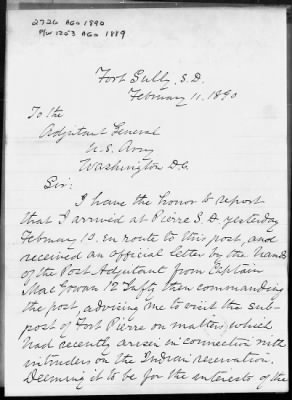 2726 AGO 1890
P/W 1203 AGO 1889
Fort Sully, S.D.
February 11, 1890
To the
Adjutant General
U.S. Army
Washington D.C.
Sir:
I have the honor to report
that I arrived at Pierre S.D. yesterday
February 10. en route to this post, and
received an official letter by the hands
of the Post Adjutant from Captain
MacGowan 12 Infty, then commanding
the post, advising me to visit the sub-
post of Fort Pierre on matters, which
had recently arisen in connection with
intruders on the Indian reservation.
Deeming it to be for the interests of the